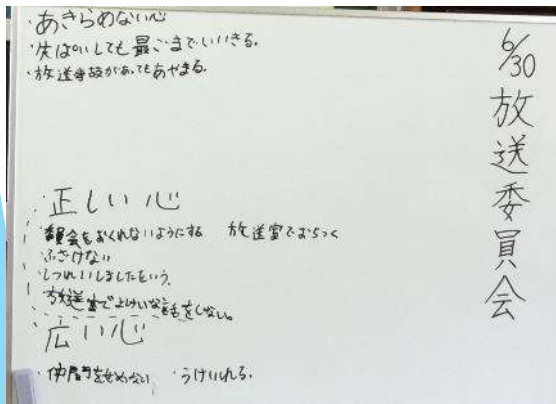 6/30 放送委員会
・あきらめない心
・失ぱいしても最ごまでいいきる.
・放送事故があってもあやまる.
正しい心
・委員会をおくれないようにする 放送室でおちつく
・ふざけない
・しつれいしましたという.
・放送室でよけいな話をしない。
広い心
・仲間をせめない ・うけいれる.